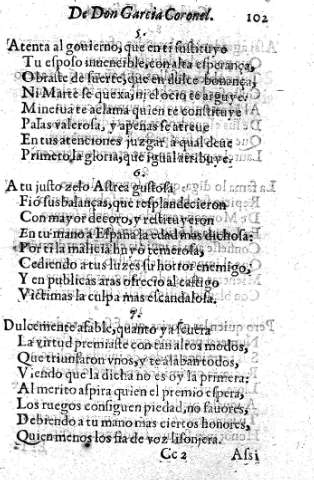 De Don Garcia Coronel. 102
5.
Atenta al gouierno, que en ti sustituyo
Tu esposo inuencible, con alta esperança,
Obraste de suerte, que en dulce bonança,
Ni Marte se quexa, ni el ocio te arguye.
Minerua te aclama quien te constituye
Palas valerosa, y apenas se atreue
En tus atenciones juzgar, a qual deue
Primero la gloria, que igual atribuye.
6.
A tu justo zelo Astrea gustosa
Fiò sus balanças, que resplandecieron
Con mayor decoro, y restituyeron
En tu mano a España la edad mas dichosa:
Por ti la malicia huyò temerosa,
Cediendo a tus luzes su horror enemigo,
Y en publicas aras ofrecio al castigo
Victimas la culpa mas escandalosa.
7.
Dulcemente afable, quanto yà seuera
La virtud premiaste con tan altos modos,
Que triunfaron vnos, y te alaban todos,
Viendo que la dicha no es oy la primera:
Al merito aspira quien el premio espera,
Los ruegos consiguen piedad, no fauores,
Debiendo a tu mano mas ciertos honores,
Quien menos los fia de voz lisonjera.
Cc 2 Assi